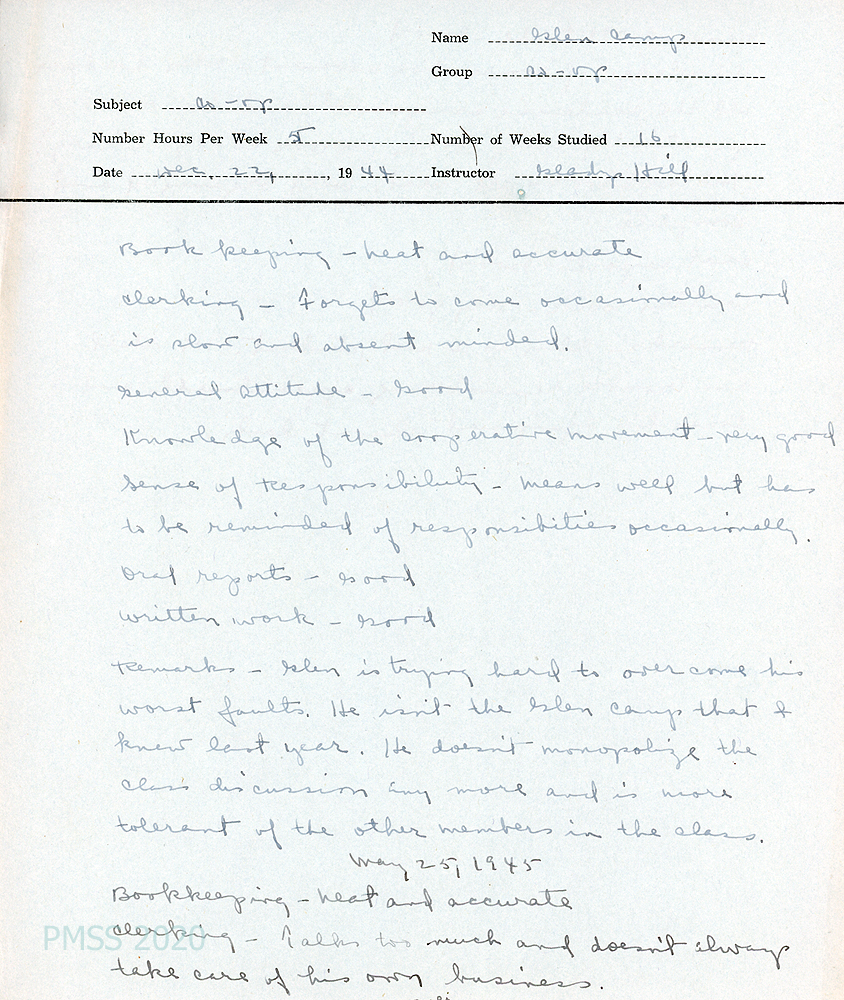 Name Glen Camp
Group Co-op
Subject Co-op
Number Hours Per Week 5 Number of Weeks Studied 16
Date Dec. 22, 1944 Instructor Gladys Hill
Book keeping - neat and accurate
Clerking - Forgets to come occasionally and
is slow and absent minded.
General attitude - Good
Knowledge of the cooperative movement - very good
Sense of responsibility - means well but has
to be reminded of responsibities occasionally.
Oral reports - Good
Written work - Good
Remarks - Glen is trying hard to overcome his
worst faults. He isn't the Glen Camp that I
knew last year. He doesn't monopolize the
class discussion any more and is more
tolerant of the other members in the class.
May 25, 1945
Bookkeeping - neat and accurate
Clerking - Talks too much and doesn't always
take care of his own business.
PMSS 2020